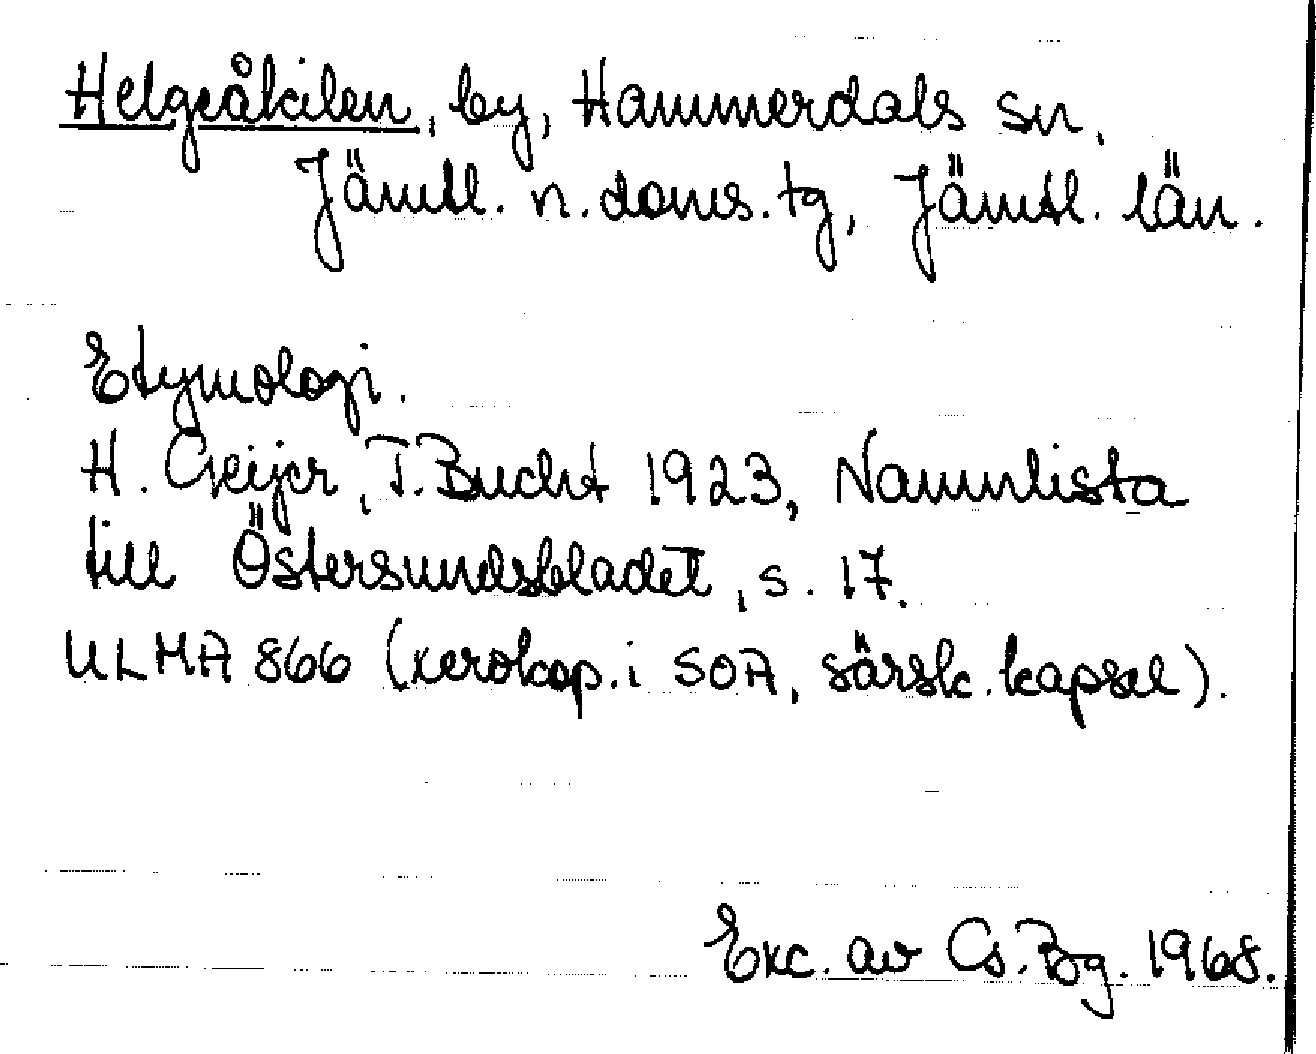 Helgeåkilen, by, Hammerdals sn,
Jämtl. n. doms. tg, Jämtl. län.
Etymologi.
H. Geijer, T. Bucht 1923, Namnlista
till Östersundsbladet, s. 17.
ULMA 866 (xerokop. i SOA, särsk. kapsel).
Exc. av Gs. Bg. 1968.